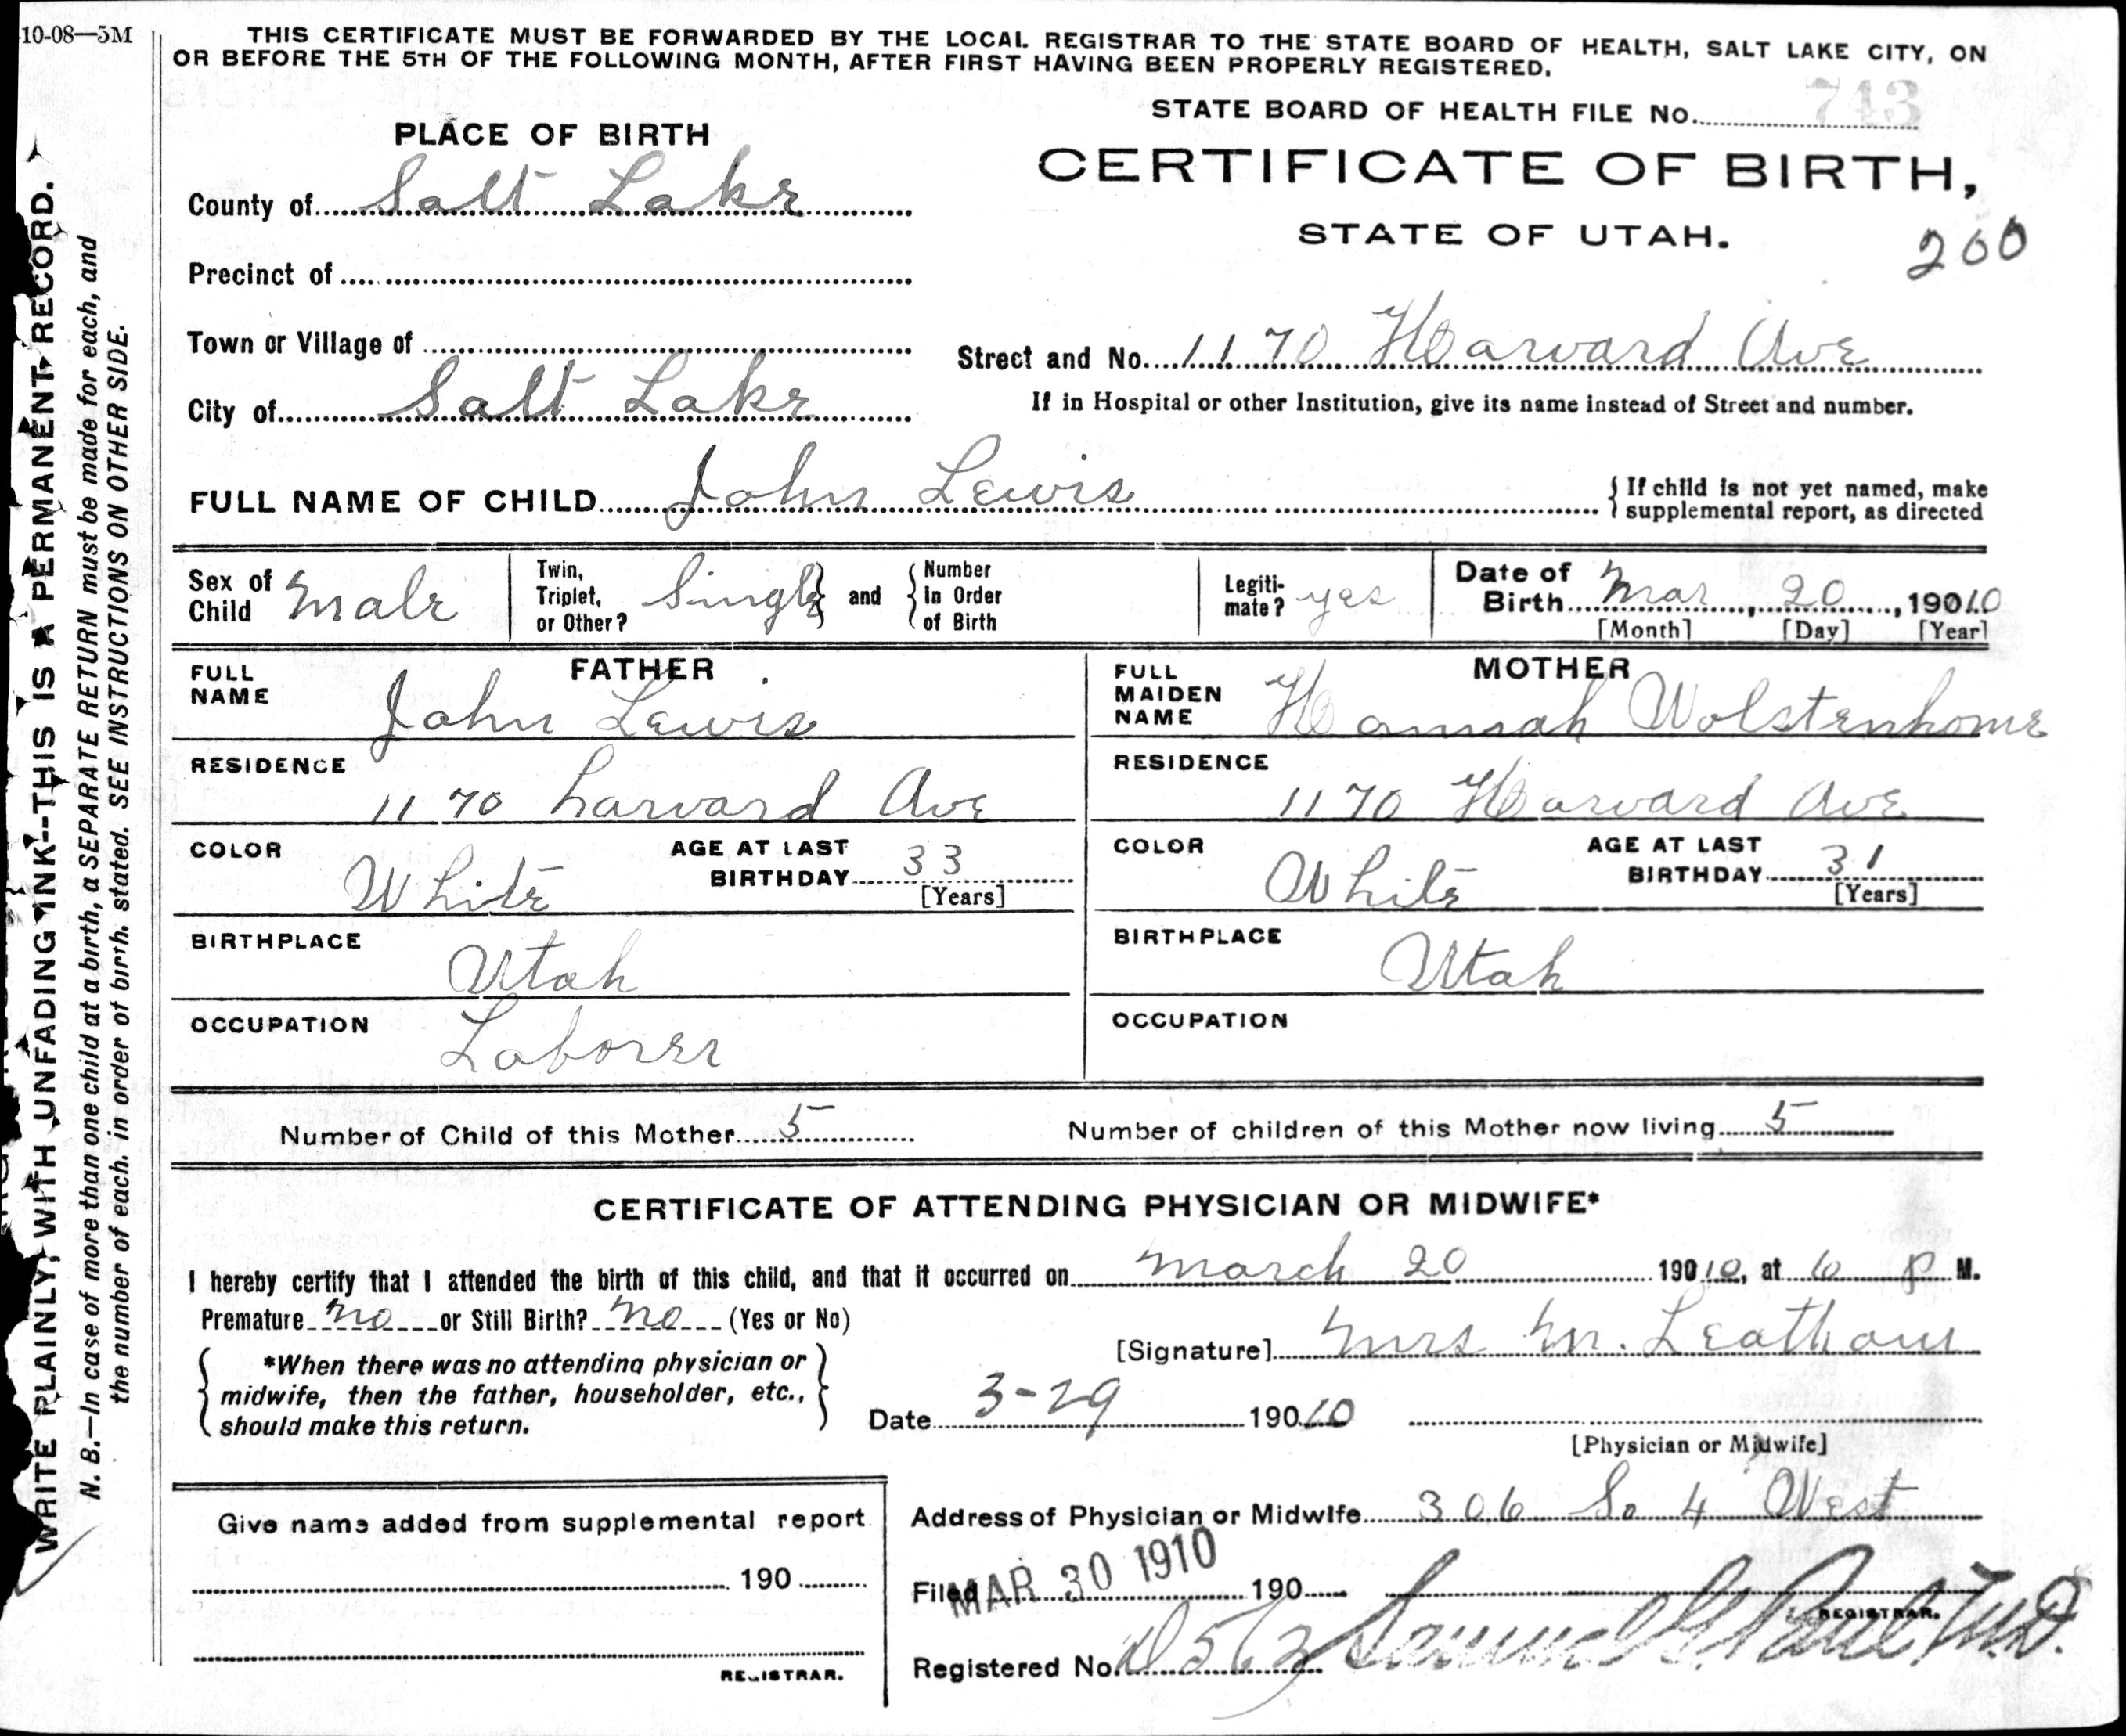 10-08—5M
THIS CERTIFICATE MUST BE FORWARDED BY THE LOCAL REGISTRAR TO THE STATE BOARD OF HEALTH, SALT LAKE CITY, ON
OR BEFORE THE 5TH OF THE FOLLOWING MONTH, AFTER FIRST HAVING BEEN PROPERLY REGISTERED.
STATE BOARD OF HEALTH FILE No. 743
PLACE OF BIRTH
CERTIFICATE OF BIRTH,
STATE OF UTAH.
200
County of Salt Lake
Precinct of
Town or Village of
Street and No. 1170 Harvard Ave
City of Salt Lake
If in Hospital or other Institution, give its name instead of Street and number.
FULL NAME OF CHILD John Lewis
{ If child is not yet named, make
supplemental report, as directed
Sex of Child Male
Twin, Triplet, or Other? Single } and { Number in Order of Birth
Legiti-mate? yes
Date of Birth Mar, 20, 19010
[Month] [Day] [Year]
FATHER
FULL NAME John Lewis
RESIDENCE
1170 harvard Ave
COLOR White
AGE AT LAST BIRTHDAY 33
[Years]
BIRTHPLACE
Utah
OCCUPATION
Laborer
MOTHER
FULL MAIDEN NAME Hannah Wolstenhome
RESIDENCE
1170 Harvard Ave
COLOR White
AGE AT LAST BIRTHDAY 31
[Years]
BIRTHPLACE
Utah
OCCUPATION
Number of Child of this Mother 5
Number of children of this Mother now living 5
CERTIFICATE OF ATTENDING PHYSICIAN OR MIDWIFE*
I hereby certify that I attended the birth of this child, and that it occurred on March 20 19010, at 6 P M.
Premature no or Still Birth? no (Yes or No)
[Signature] Mrs M. Leatham
{ *When there was no attending physician or
midwife, then the father, householder, etc.,
should make this return. }
Date 3-29 19010
[Physician or Midwife]
Give name added from supplemental report
190
REGISTRAR.
Address of Physician or Midwife 306 So 4 West
Filed MAR 30 1910 190
REGISTRAR.
Registered No. Samuel G. Paul M.D.
WRITE PLAINLY, WITH UNFADING INK--THIS IS A PERMANENT RECORD.
N. B.—In case of more than one child at a birth, a SEPARATE RETURN must be made for each, and
the number of each, in order of birth, stated. SEE INSTRUCTIONS ON OTHER SIDE.